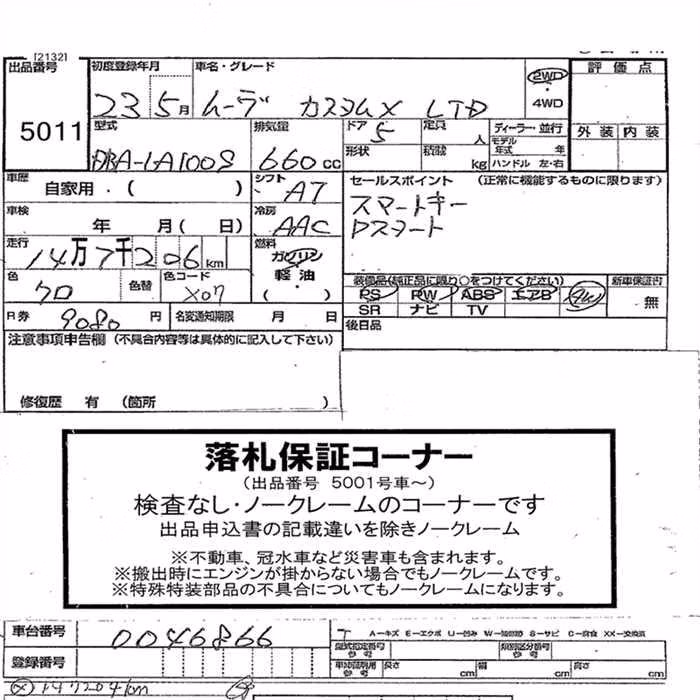 [2132]
出品番号 初度登録年月 車名・グレード 2WD 評価点
5011 23 5月 ムーヴ カスタムX LTD 4WD
型式 排気量 ドア 定員 ディーラー・並行 外装 内装
DBA-LA100S 660cc 5 人 モデル年式 年
形状 積載 kg ハンドル 左・右
車歴 自家用・( ) シフト AT セールスポイント (正常に機能するものに限ります)
車検 年 月( 日) 冷房 AAC スマートキー
Pスタート
走行 14万7千206km 燃料 ガソリン・軽油 ( )
色 クロ 色替 色コード X07 装備品(純正品に限り○をつけてください) 新車保証書
PS PW ABS エアB AW 無
SR ナビ TV
R券 9080円 名変通知期限 月 日 後日品
注意事項申告欄 (不具合内容等は具体的に記入して下さい)
修復歴 有 (箇所 )
落札保証コーナー
(出品番号 5001号車〜)
検査なし・ノークレームのコーナーです
出品申込書の記載違いを除きノークレーム
※不動車、冠水車など災害車も含まれます。
※搬出時にエンジンが掛からない場合でもノークレームです。
※特殊特装部品の不具合についてもノークレームになります。
車台番号 0046866 A―キズ E―エクボ U―凹み S―サビ C―腐食 XX―交換済
登録番号 型式指定番号 参考 類別区分番号 参考
長さ cm 幅 cm 高さ cm
147204km